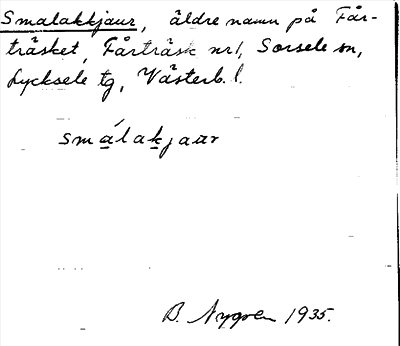 Smalakkjaur, äldre namn på Får-
träsket, Fårträsk nr 1, Sorsele sn,
Lycksele tg, Västerb. l.
smálakjaur
B. Nygren 1935.